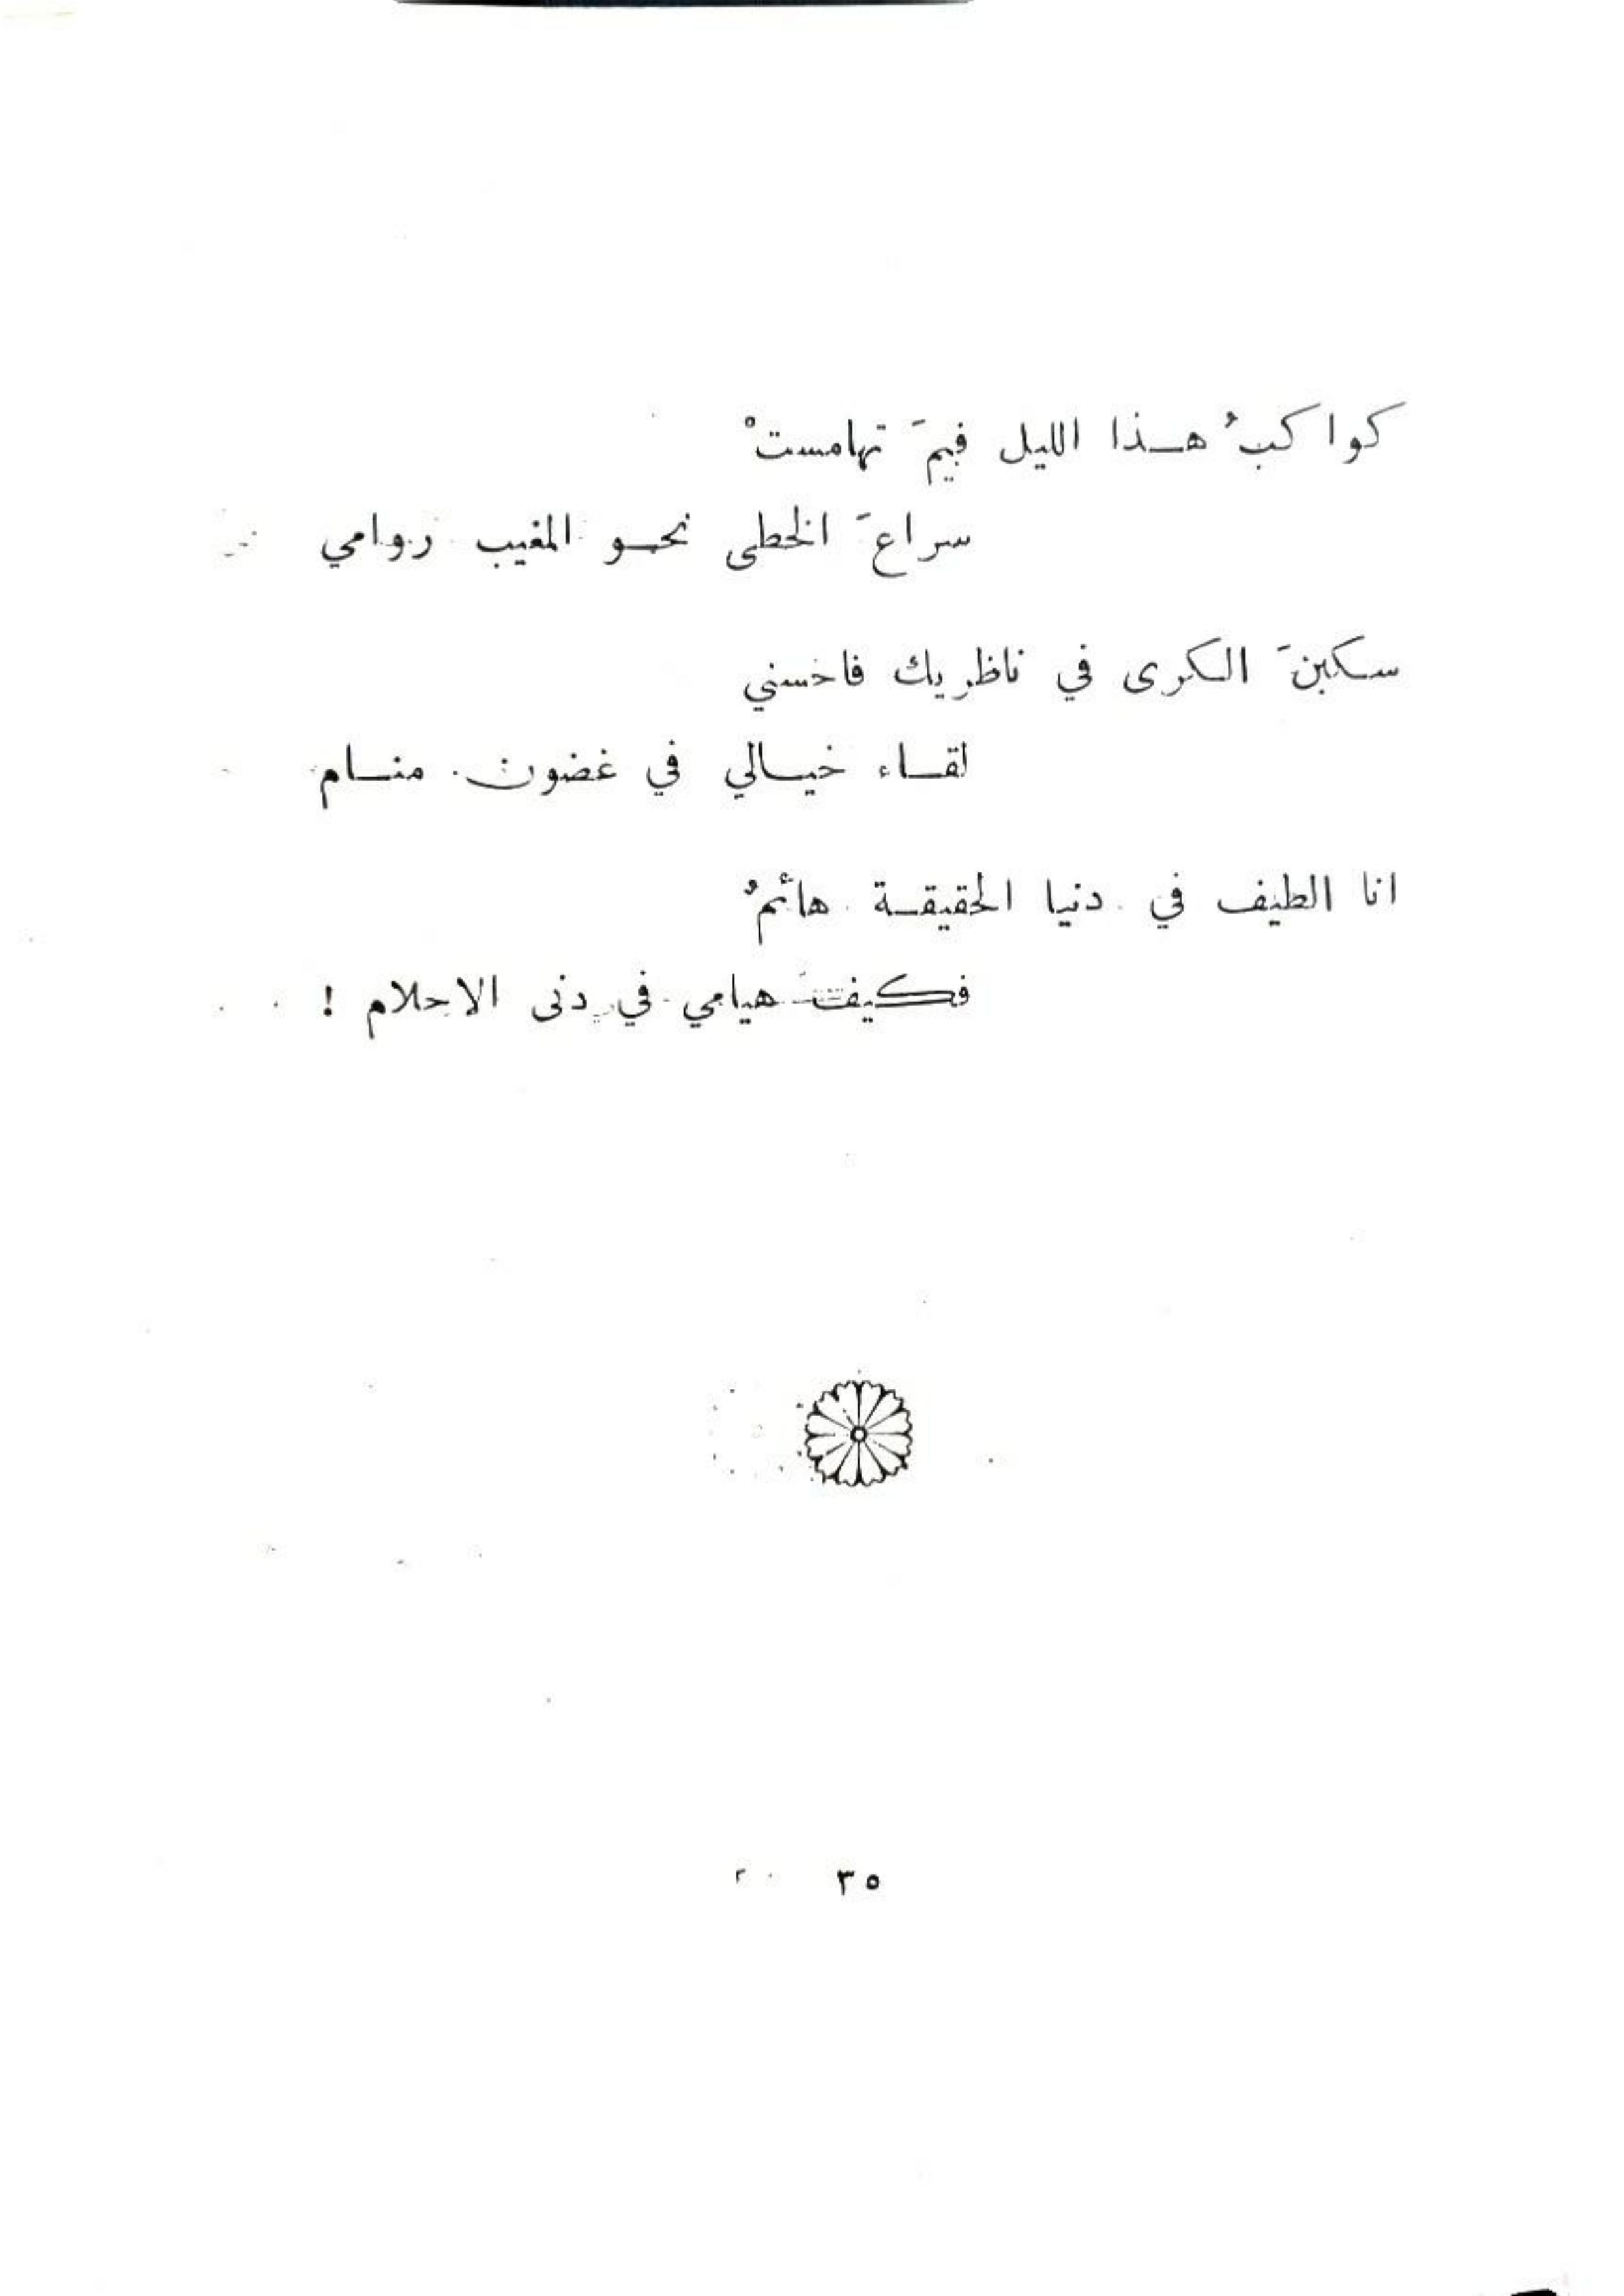 كواكبُ هـذا الليل فيمَ تهامستْ
سراعَ الخطى نحـو المغيب روامي
سكبنَ الـكرى في ناظريك فاحسني
لقـاء خيـالي في غضون منـام
انا الطيف في دنيا الحقيقـة هائمٌ
فـكيفَ هيامي في دنى الاحلام !
٣٥